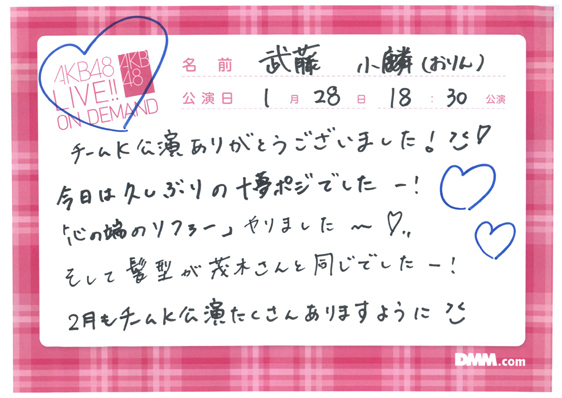 AKB48
LIVE!!
ON DEMAND
AKB
48
名前 武藤 小麟(おりん)
公演日 1月28日 18:30公演
チームK公演ありがとうございました!
今日は久しぶりの十夢ポジでしたー!
「心の端のソファー」やりました〜♡..
そして髪型が茂木さんと同じでしたー!
2月もチームK公演たくさんありますように
DMM.com